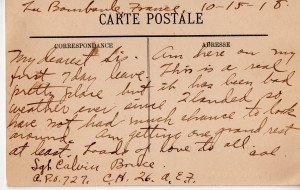 La Bourboule, France 10-15-18.
CARTE POSTALE
CORRESPONDANCE
ADRESSE
My dearest Sis- Am here on my
first 7 day leave. This is a real
pretty place but it has been bad
weather ever since I landed so
have not had much chance to look
around. Am getting one grand rest
at least. Loads of love to all Cal.
Sgt Calvin Bruce
A.P.O. 727. C.H. 26. A.E.F.